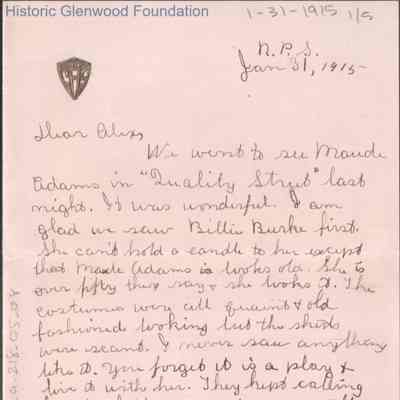 Historic Glenwood Foundation
1-31-1915 1/5
N.P.S.
Jan 31, 1915
Dear Alex,
We went to see Maude
Adams in "Quality Street" last
night. It was wonderful. I am
glad we saw Billie Burke first.
She can't hold a candle to her except
that Maude Adams is looks old. She is
over fifty they say & she looks it. The
costumes were all quaint & old
fashioned looking but the
were scant. I never saw anything
like it. You forget it is a play &
live it with her. They kept calling